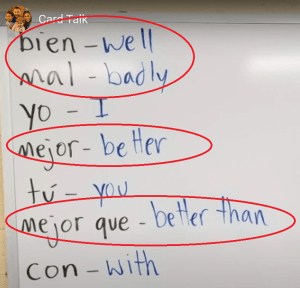 Card Talk
bien - well
mal - badly
yo - I
mejor - better
tú - you
mejor que - better than
con - with